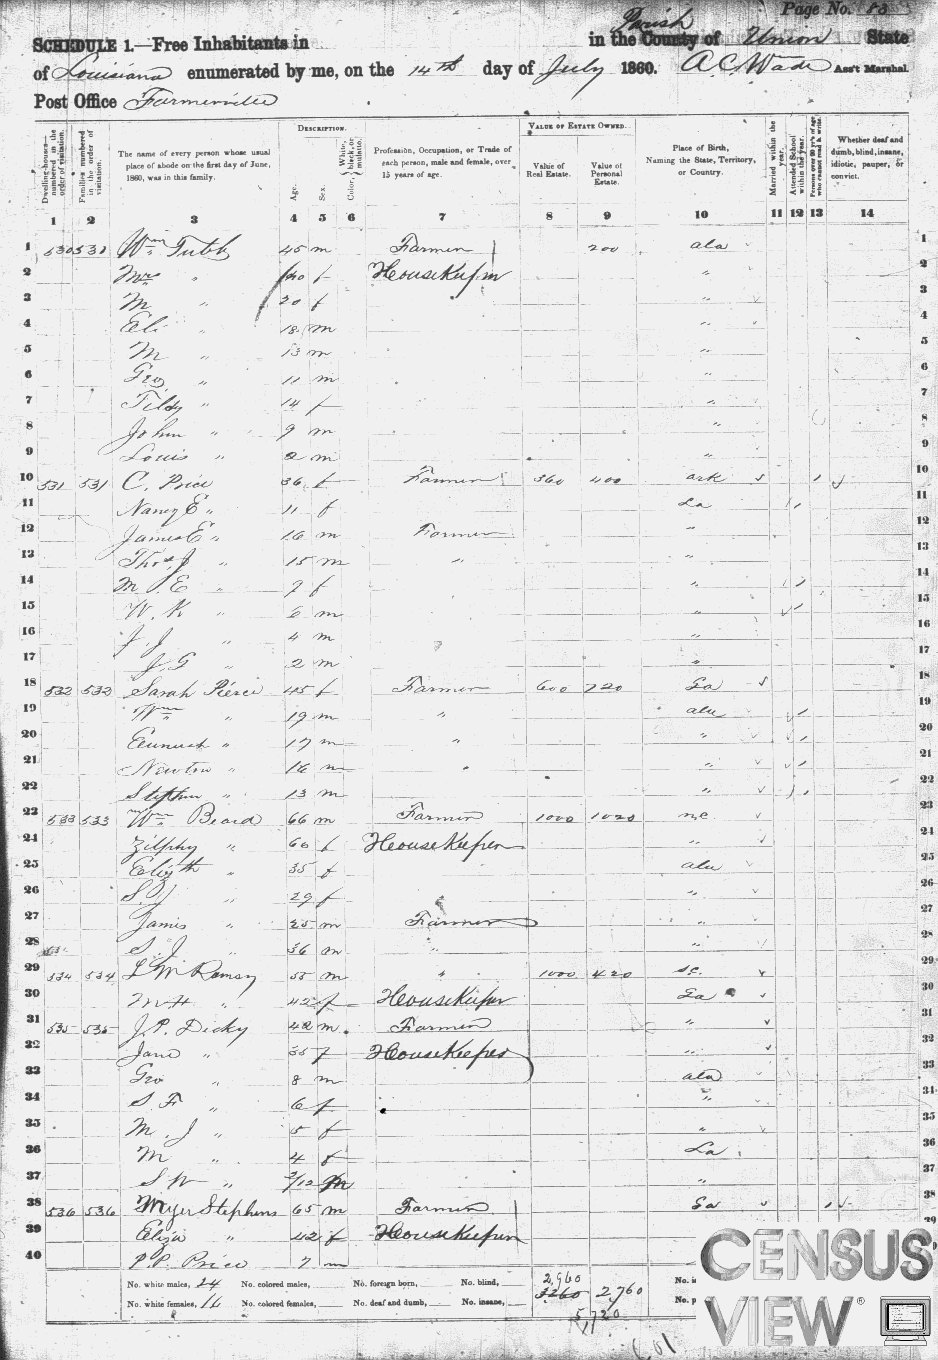 Page No. 83
SCHEDULE 1.—Free Inhabitants in in the County of Parish Union State
of Louisiana enumerated by me, on the 14th day of July 1860. A C Wade Ass't Marshal.
Post Office Farmerville
Dwelling-houses—numbered in the order of visitation.
Families numbered in the order of visitation.
The name of every person whose usual place of abode on the first day of June, 1860, was in this family.
DESCRIPTION.
Age.
Sex.
Color, White, black, or mulatto.
Profession, Occupation, or Trade of each person, male and female, over 15 years of age.
VALUE OF ESTATE OWNED.
Value of Real Estate.
Value of Personal Estate.
Place of Birth, Naming the State, Territory, or Country.
Married within the year.
Attended School within the year.
Persons over 20 y'rs of age who cannot read & write.
Whether deaf and dumb, blind, insane, idiotic, pauper, or convict.
1 2 3 4 5 6 7 8 9 10 11 12 13 14
1 530 530 Wm 45 m Farmer 200 ala 1
2 Mrs " 40 f HouseKeeper " 2
3 M " 20 f " 3
4 Eli " 18 m " 4
5 M " 13 m " 5
6 Geo " 11 m " 6
7 Tildy " 14 f " 7
8 John " 9 m " 8
9 Louis " 2 m " 9
10 531 531 C. Price 36 f Farmer 360 400 ark 1 10
11 Nancy E " 11 f La / 11
12 James E " 16 m Farmer " 12
13 Thos J " 15 m " " 13
14 M. E " 9 f " / 14
15 W. K " 6 m " / 15
16 J. J " 4 m " 16
17 J. G " 2 m " 17
18 532 532 Sarah Pierce 45 f Farmer 600 720 Ga 18
19 Wm " 19 m " ala / 19
20 " 17 m " " / 20
21 Newton " 16 m " / 21
22 Stephen " 13 m " / 22
23 533 533 Wm Beard 66 m Farmer 1000 1020 nc 23
24 Zilphy " 60 f HouseKeeper " 24
25 Elizth " 35 f ala 25
26 S. J " 29 f " 26
27 James " 25 m Farmer " 27
28 S. J " 36 m " " 28
29 534 534 L W Ramsy 55 m " 1000 420 sc. 29
30 M H " 42 f HouseKeeper Ga 30
31 535 535 J. P. Dicky 42 m Farmer " 31
32 Jane " 35 f HouseKeeper " 32
33 Geo " 8 m ala 33
34 S F " 6 f " 34
35 M. J " 5 f " 35
36 M " 4 f La 36
37 S W " 2/12 m " 37
38 536 536 Myer Stephens 65 m Farmer Ga 1 38
39 Eliza " 42 f HouseKeeper
40 P. P. Price 7 m
No. white males, 24 No. colored males, No. foreign born, No. blind, 2,960
No. white females, 16 No. colored females, No. deaf and dumb, No. insane, 3260 2,760
5,720
CENSUS
VIEW®